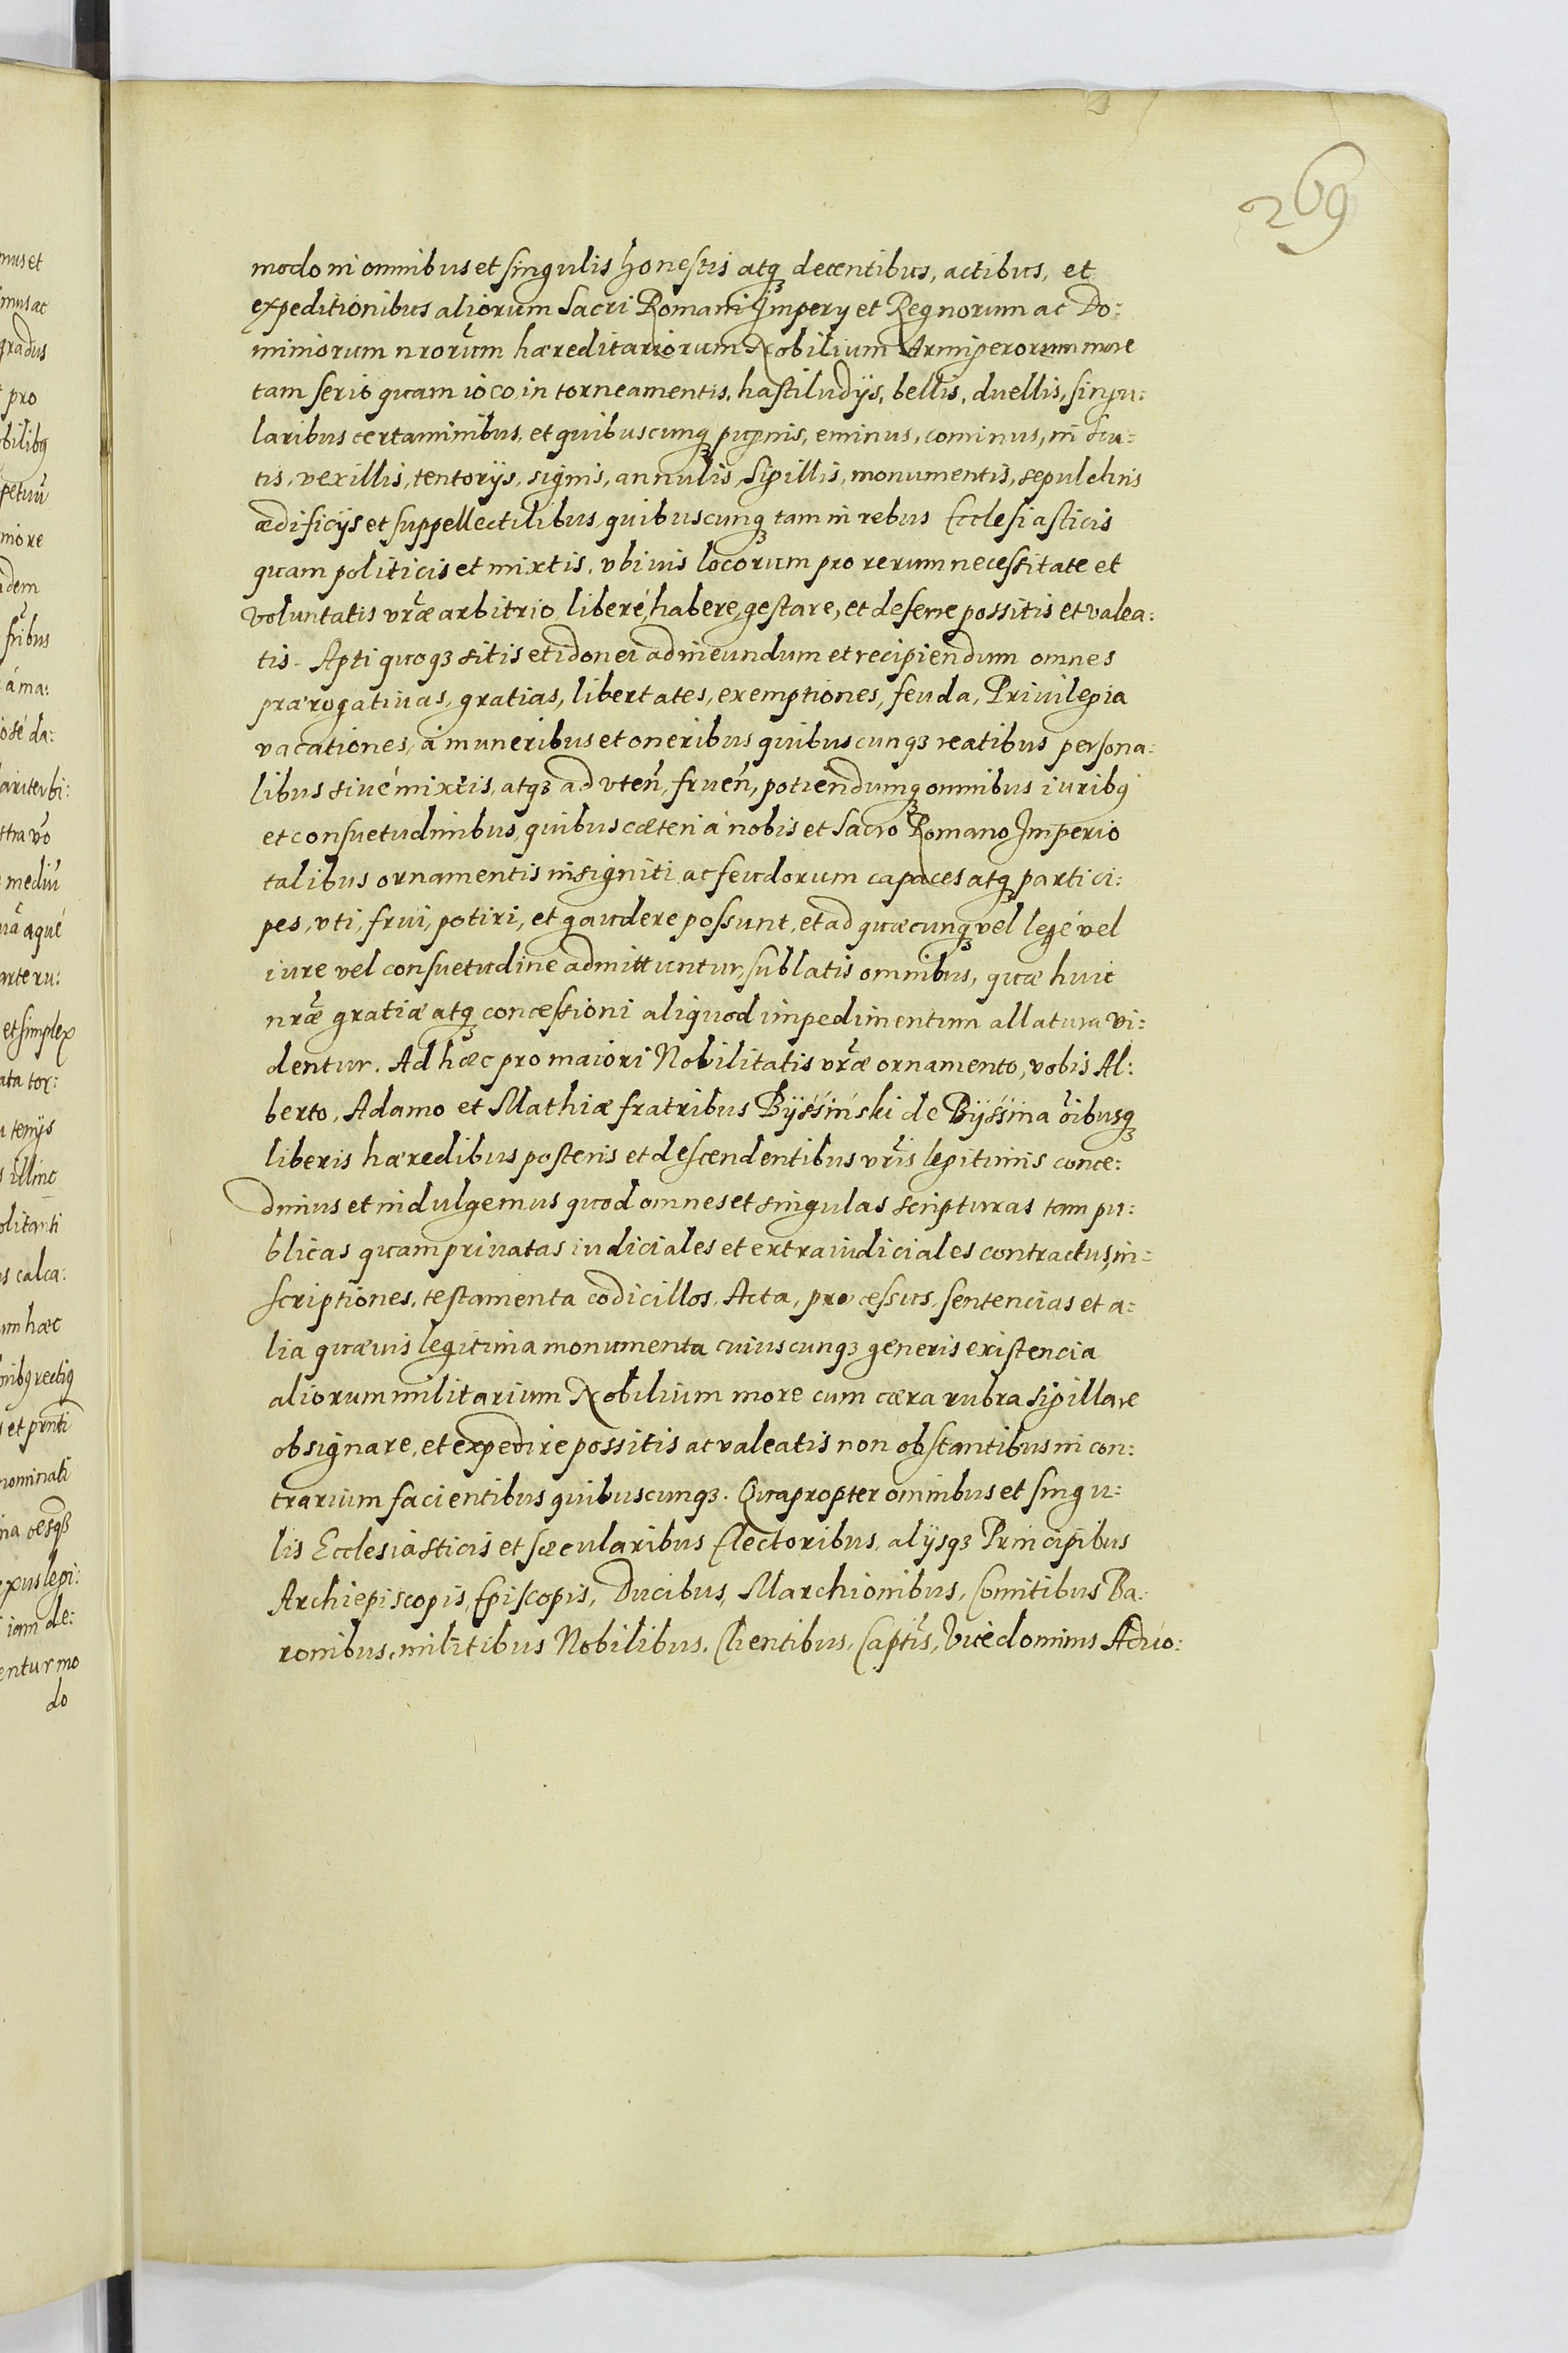 269
modo in omnibus et singulis honestis atq₃ decentibus, actibus, et
expeditionibus aliorum Sacri Romani Impery et Regnorum ac Do:
miniorum nrorum hæreditariorum Nobilium Armigerorum more
tam serio quam ioco in torneamentis, hastiludÿs, bellis, duellis, singu:
laribus certaminibus, et quibuscunq₃ pugnis, eminus, cominus, in scu:
tis, vexillis, tentorÿs, signis, annulis, sigillis, monumentis, sepulchris
ædificÿs et suppellectilibus quibuscunq₃ tam in rebus Ecclesiasticis
quam politicis et mixtis, vbiuis locorum pro rerum necessitate et
voluntatis vræ arbitrio, liberé, habere, gestare, et deferre possitis et valea:
tis. Apti quoq₃ sitis et idonei ad ineundum et recipiendum omnes
prærogatiuas, gratias, libertates, exemptiones, feuda, Priuilegia
vacationes, á muneribus et oneribus quibuscunq₃ reatibus persona:
libus siué mixtis, atq₃ ad vteñ, frueñ, potiendumq₃ omnibus iuribq
et consuetudinibus, quibus cæteri á nobis et Sacro Romano Imperio
talibus ornamentis insigniti ac feudorum capaces atq₃ partici:
pes, vti, frui, potiri, et gaudere possunt, et ad quæcunq₃ vel legé vel
iure vel consuetudine admittuntur, sublatis omnibus, quæ huic
nræ gratiæ atq₃ concessioni aliquod impedimentum allatura vi:
dentur. Ad hæc pro maiori Nobilitatis vræ ornamento, vobis Al:
berto, Adamo et Mathiæ fratribus Bÿśśiński de Bÿśśina oibusq₃
liberis hæredibus posteris et descendentibus vris legitimis conce:
dimus et indulgemus quod omnes et singulas scripturas tam pu:
blicas quam priuatas iudiciales et extraiudiciales contractus, in:
scriptiones, testamenta codicillos, Acta, processus, sentencias et a:
lia quæuis legitima monumenta cuiuscunq₃ generis existencia
aliorum militarium Nobilium more cum cæra rubra sigillare
obsignare, et expedire possitis ac valeatis non obstantibus in con:
trarium facientibus quibuscunq₃. Quapropter omnibus et singu:
lis Ecclesiasticis et sæcularibus Electoribus, alÿsq₃ Principibus
Archiepiscopis, Episcopis, Ducibus, Marchionibus, Comitibus Ba:
ronibus, militibus Nobilibus, Clientibus, Captis, Vicedominis Aduo: